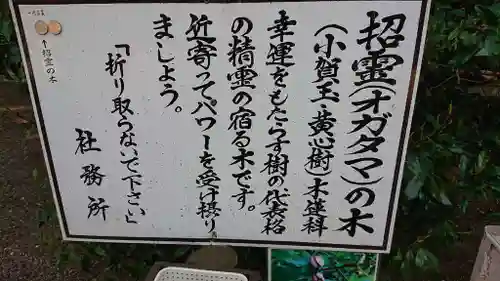 招霊(オガタマ)の木
(小賀玉・黄心樹)木蓮科
幸運をもたらす樹の代表格
の精霊の宿る木です。
近寄ってパワーを受け授り
ましょう。
「折り取らないで下さい」
社務所
↑招霊の木